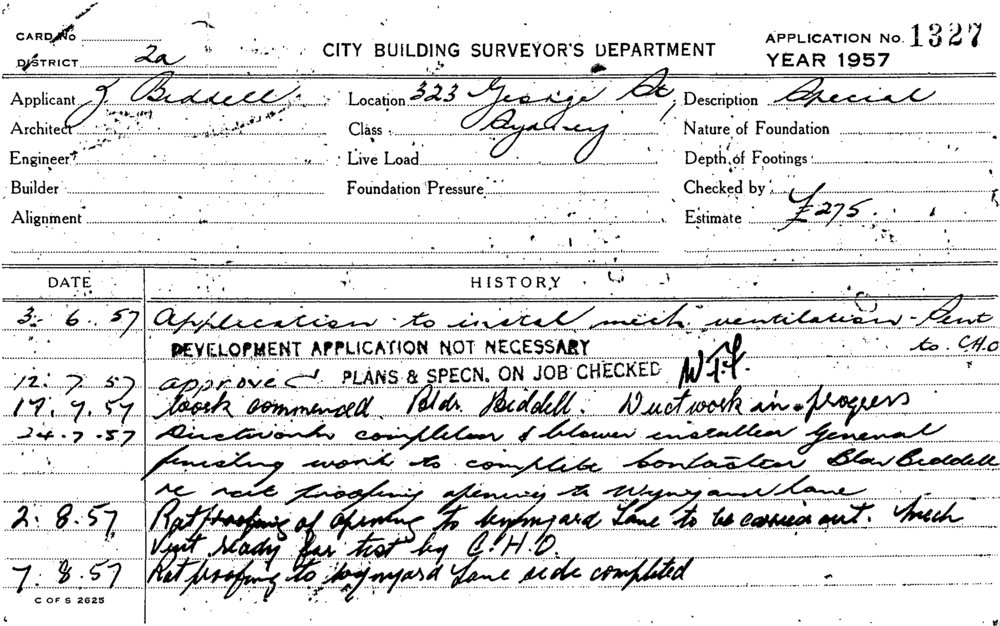 CARD No
DISTRICT 2a
CITY BUILDING SURVEYOR'S DEPARTMENT
APPLICATION No. 1327
YEAR 1957
Applicant J. Biddell
Location 323 George St,
Description Special
Architect
Class Sydney
Nature of Foundation
Engineer
Live Load
Depth of Footings
Builder
Foundation Pressure
Checked by
Alignment
Estimate £275.
DATE HISTORY
3. 6. 57 Application to instal mech ventilation - Sent
to C.H.O
DEVELOPMENT APPLICATION NOT NECESSARY
12. 7. 57 approved PLANS & SPECN. ON JOB CHECKED
17. 7. 57 Work commenced. Bldr. Biddell. Ductwork in progress
24. 7. 57 Ductwork completed & blower installed General
finishing work to complete Contacted Bldr Biddell
re rat proofing opening to Wynyard Lane
2. 8. 57 Ratproofing of opening to Wynyard Lane to be carried out. Mech
Vent ready for test by C.H.O.
7. 8. 57 Ratproofing to Wynyard Lane side completed
C OF S 2625